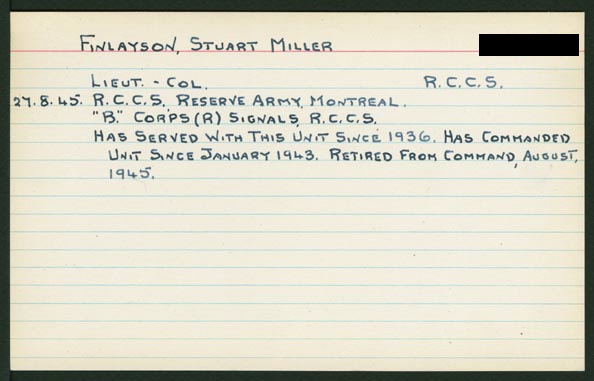 FINLAYSON, STUART MILLER
LIEUT. - COL. R.C.C.S.
27.8.45. R.C.C.S. RESERVE ARMY, MONTREAL.
"B." CORPS (R) SIGNALS, R.C.C.S.
HAS SERVED WITH THIS UNIT SINCE 1936. HAS COMMANDED
UNIT SINCE JANUARY 1943. RETIRED FROM COMMAND, AUGUST,
1945.